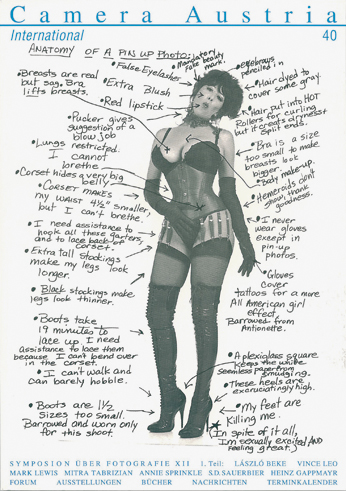 Camera Austria
International
40
ANATOMY OF A PIN UP PHOTO:
• Mandatory
fake beauty
mark.
• False Eyelashes
• eyebrows
penciled in
• Breasts are real
but sag. Bra
lifts breasts.
• Extra Blush
• Hair dyed to
cover some gray.
• Red lipstick
• Hair put into HOT
Rollers for curling
but it creates dryness &
split ends.
• Pucker gives
suggestion of a
blow job
• Bra is a size
too small to make
breasts look
bigger.
• Lungs restricted.
I cannot
brethe
• Body make-up.
• Corset hides a very big
belly
• Hemeroids don't
show, thank
goodness.
• Corset makes
my waist 4½" smaller,
but I can't brethe.
• I never
wear gloves
except in
pin-up
photos.
• I need assistance to
hook all these garters,
and to lace back of
corset.
• Extra tall stockings
make my legs look
longer.
• Gloves
cover
tattoos for a more
All American girl
effect.
Barrowed from
Antionette.
• Black stockings make
legs look thinner.
• Boots take
19 minutes to
lace up. I need
assistance to lace them
because I can't bend over
in the corset.
• A plexiglass square
keeps the white
seamless paper from
smudging.
• I can't walk and
can barely hobble.
• These heels are
excruciatingly high.
• Boots are 1½
Sizes too small.
Barrowed and worn only
for this shoot.
• My feet are
Killing me.
In spite of it all,
I'm sexually excited AND
feeling great.
SYMPOSION ÜBER FOTOGRAFIE XII 1. Teil: LÁSZLÓ BEKE VINCE LEO
MARK LEWIS MITRA TABRIZIAN ANNIE SPRINKLE S.D. SAUERBIER HEINZ GAPPMAYR
FORUM AUSSTELLUNGEN BÜCHER NACHRICHTEN TERMINKALENDER